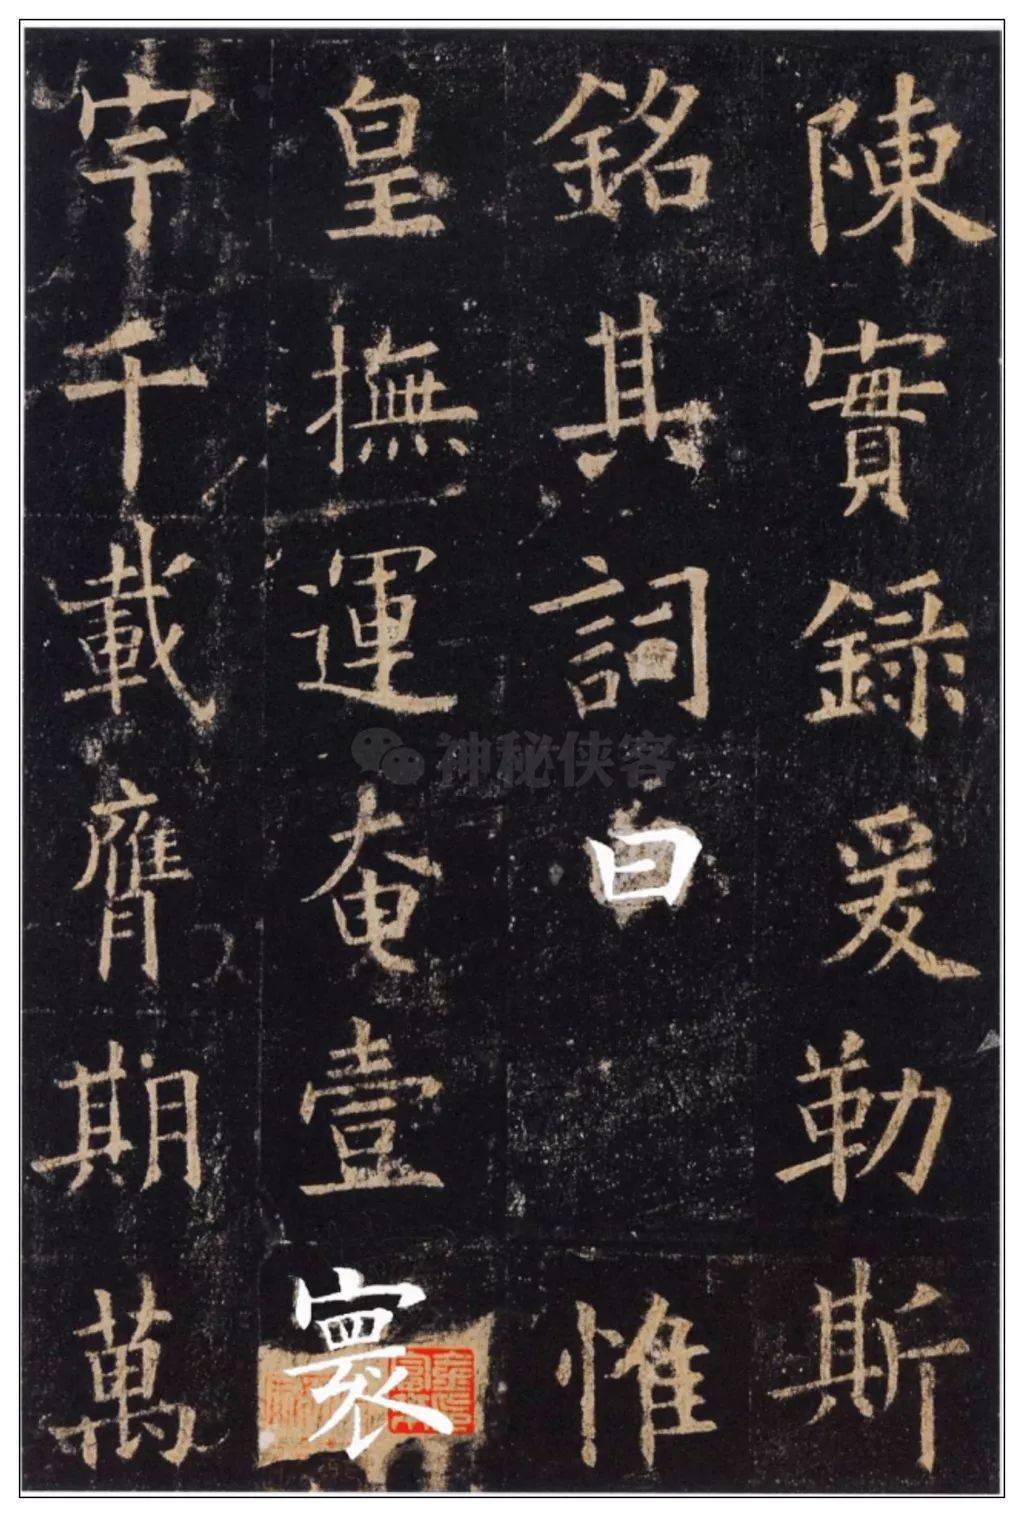 陳實録爰勒斯
銘其詞曰 惟
皇撫運奄壹寰
宇千載膺期萬
神秘侠客